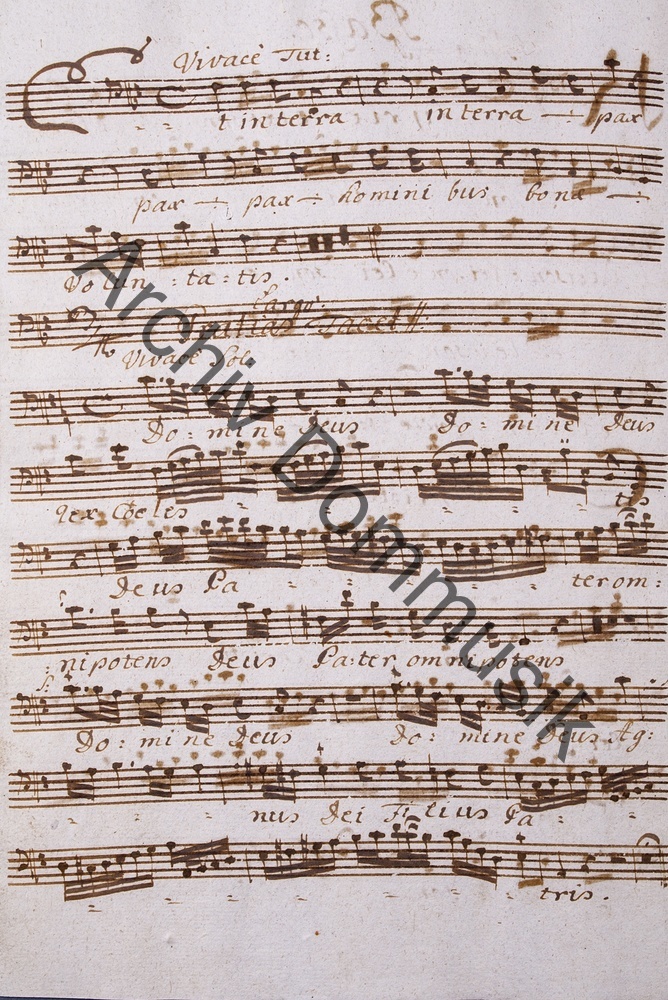 Vivacè Tut:
Et in terra in terra pax
pax pax homini bus bona
Volun = ta = tis.
Largo:
Gratias Tacet
Vivace Solo
Do = mi ne Deus Do = mi ne Deus
Rex Coeles tis
Deus Pa = = = = ter om:
:nipotens Deus Pa:ter omnipotens
Do = mi ne Deus Do = mine Deus Ag:
= = = nus Dei Filius Pa =
= = = = = = tris.
Archiv Dommusik